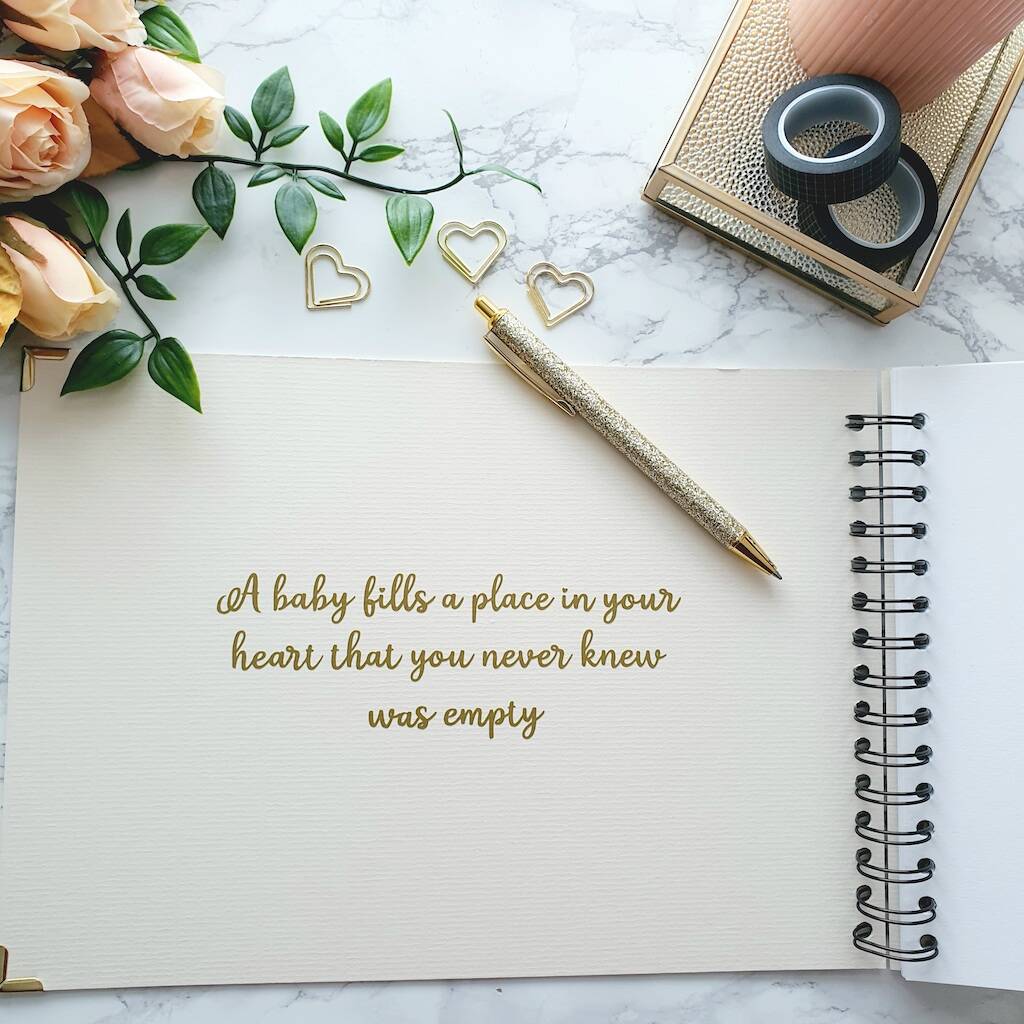 A baby fills a place in your
heart that you never knew
was empty